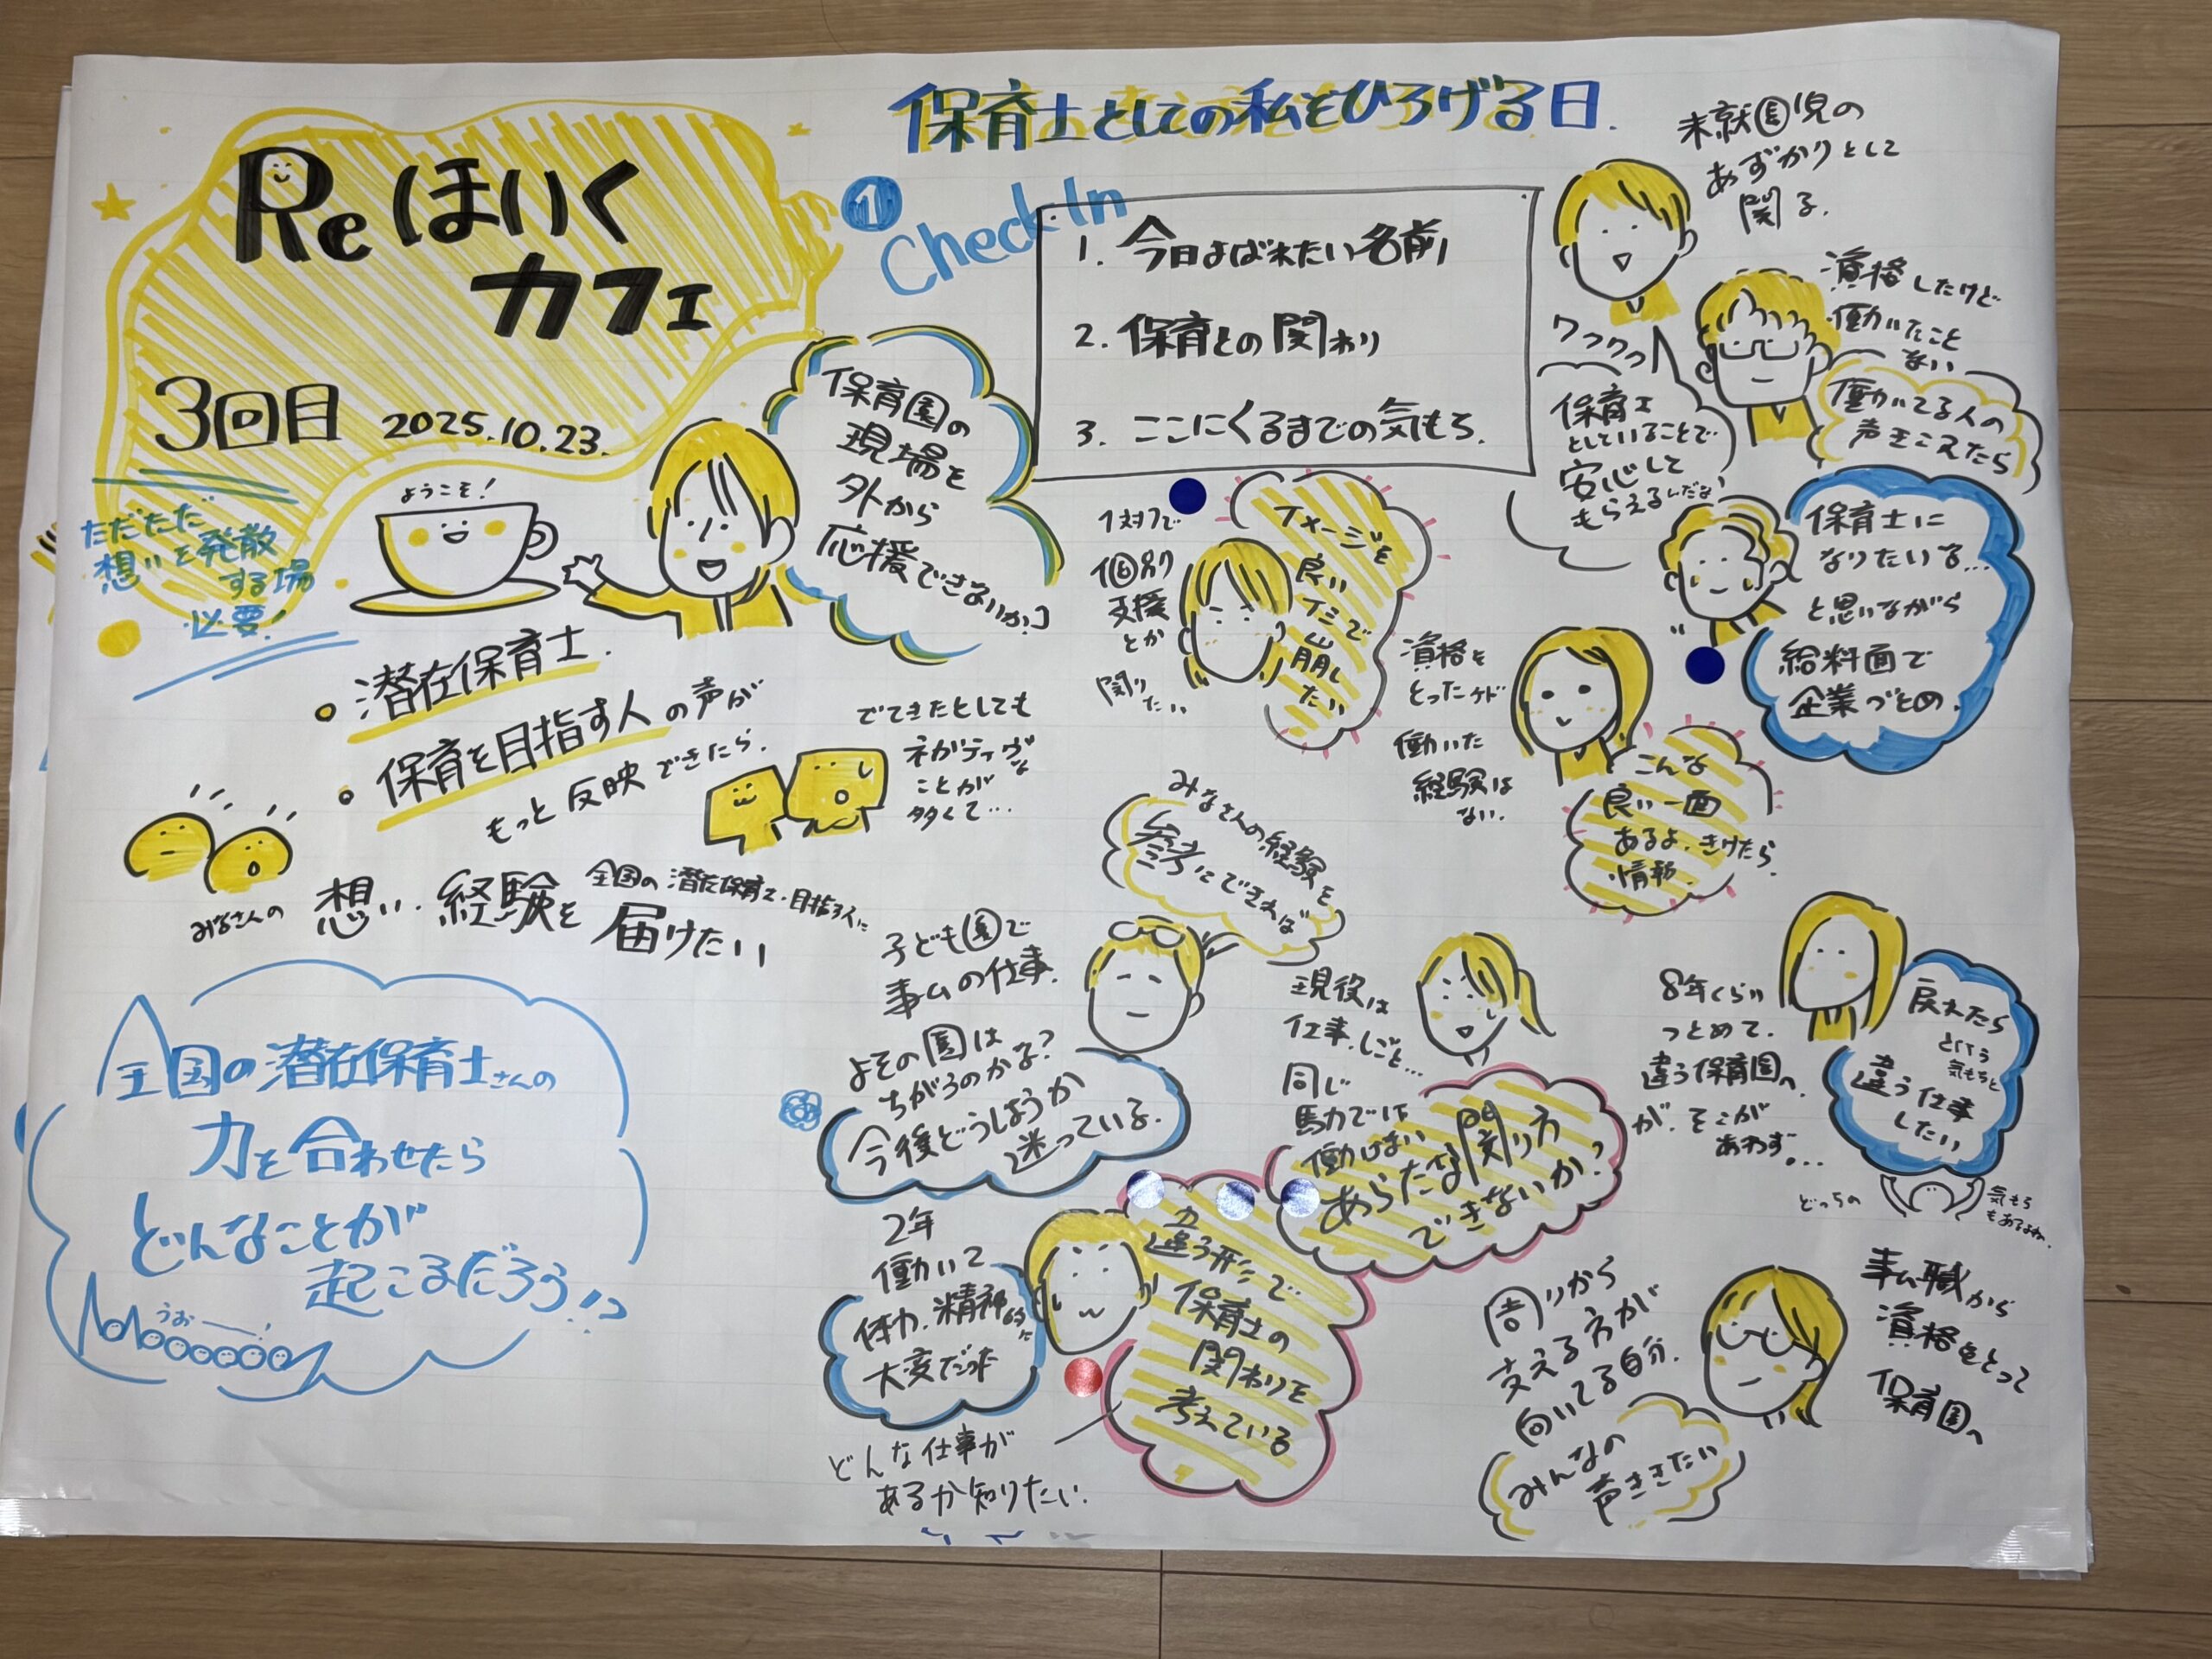 Reほいく
カフェ
3回目 2025.10.23.
ようこそ!
ただただ
想いを発散
する場
必要!
保育園の
現場を
外から
応援できないか?
潜在保育士.
保育を目指す人の声が
もっと反映できたら.
でてきたとしても
ネガティヴな
ことが
多くて…
みなさんの 想い.経験を
全国の潜在保育士・目指す人に
届けたい
全国の潜在保育士さんの
力を合わせたら
どんなことが
起こるだろう!?
うおー!
保育士としての私をひろげる日.
1 Check In
1. 今日よばれたい名前
2. 保育との関わり
3. ここにくるまでの気もち.
未就園児の
あずかりとして
関る.
ワクワク
保育士
としていることで
安心して
もらえるんだな
資格したけど
働いたこと
ない
働いてる人の
声きこえたら
保育士に
なりたいな…
と思いながら
給料面で
企業づとめ.
1対1で
個別
支援
とか
関りたい
イメージを
良いイミで
崩し
たい
資格を
とったケド
働いた
経験は
ない.
こんな
良い一面
あるよ.きけたら
情報.
みなさんの経験を
参考にできれば
子ども園で
事ムの仕事.
よその園は
ちがうのかな?
今後どうしようか
迷っている.
現役は
仕事.しごと…
同じ
馬力では
働けない
あらたな関り方
できないか?
8年くらい
つとめて.
違う保育園へ.
が.そこが
あわず…
戻れたら
という
気もちと
違う仕事
したい
どっちの
気もち
もあるよね.
2年
働いて
体力.精神的に
大変だった
違う形で
保育士の
関わりを
考えている
どんな仕事が
あるか知りたい.
周りから
支える方が
向いてる自分.
みんなの
声ききたい
事ム職から
資格をとって
保育園へ